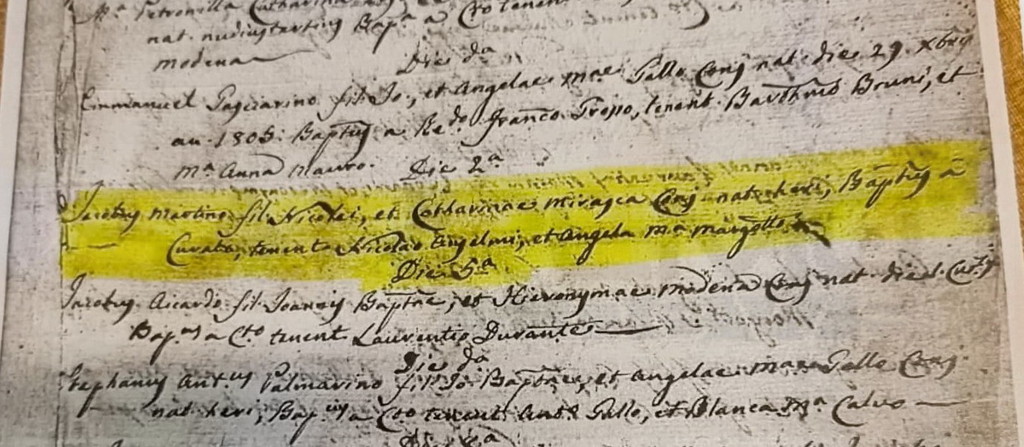 Ma Petronilla Catharina
nat. nudiustertius Bapa a Cto tenen
modena
Die da
Emmanuel Pagliarino fil. Jo:, et Angelae Mae Gallo Conj nat. dies 29 Xbris
an 1805. Baptus a Redo Franco Tropo, tenent. Barthmo Bruni, et
Ma Anna Mauro. Die 2a
Jacobus martino fil. Nicolai, et Catharinae miraca Conj. nat. heri, Baptus a
Curato, tenent Nicolao Angelmi, et Angela Ma margotto
Die 5a
Jacobus Aicardo fil. Joannis Baptae, et Hieronymae modena Conj nat. die
Bapus a Cto tenent Laurentio Durante
Die da
Stephanus Antus Palmarino fil. Jo: Baptae, et Angelae Mae Gallo Conj.
nat. heri, Bapus a Cto tenent Anto Gallo, et Blanca Ma Calvo